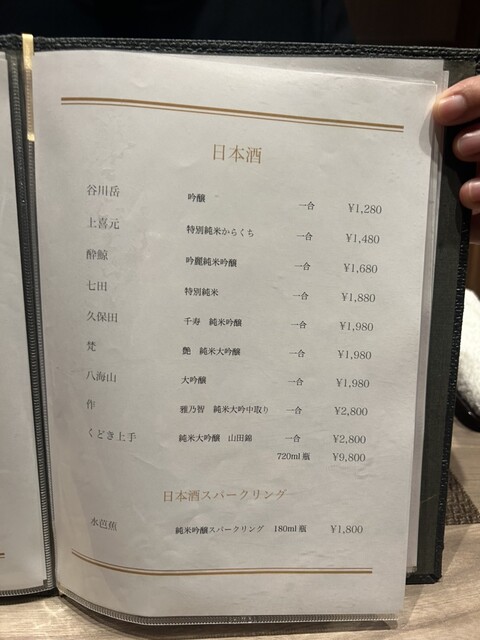 日本酒
谷川岳 吟醸 一合 ¥1,280
上喜元 特別純米からくち 一合 ¥1,480
酔鯨 吟麗純米吟醸 一合 ¥1,680
七田 特別純米 一合 ¥1,880
久保田 千寿 純米吟醸 一合 ¥1,980
梵 艶 純米大吟醸 一合 ¥1,980
八海山 大吟醸 一合 ¥1,980
作 雅乃智 純米大吟中取り 一合 ¥2,800
くどき上手 純米大吟醸 山田錦 一合 ¥2,800
720ml 瓶 ¥9,800
日本酒スパークリング
水芭蕉 純米吟醸スパークリング 180ml 瓶 ¥1,800